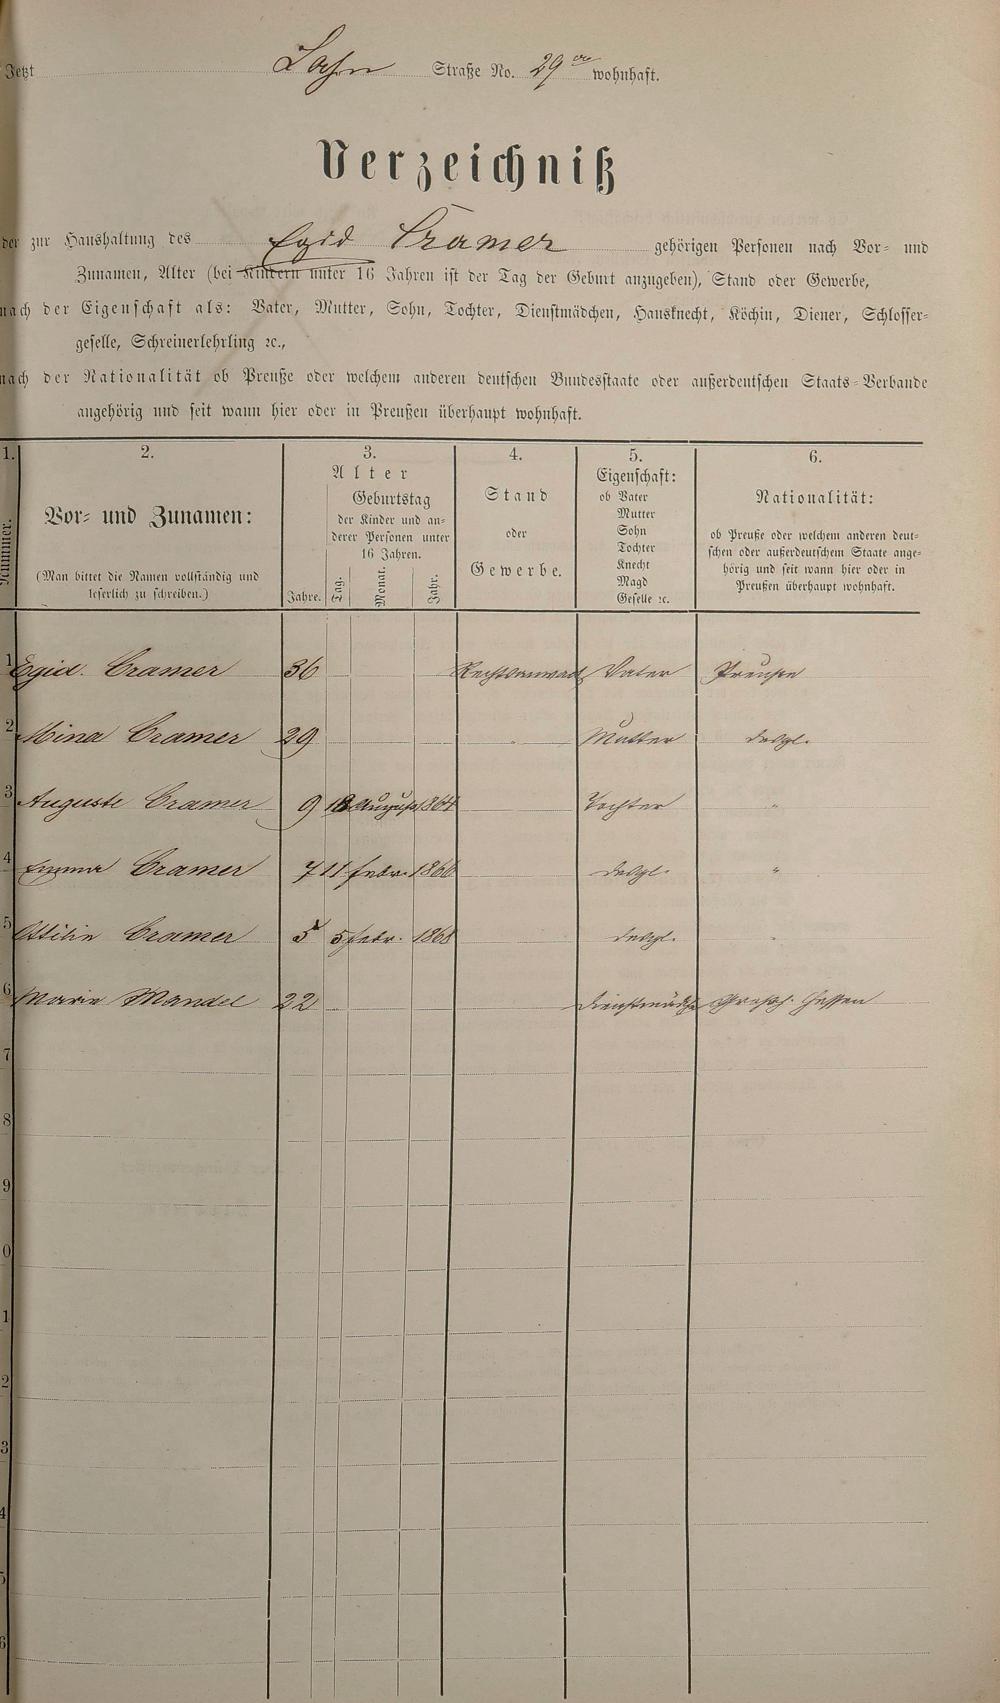 Jetzt Lahn Straße No. 29 wohnhaft.
Verzeichniß
der zur Haushaltung des Egid Cramer gehörigen Personen nach Vor- und
Zunamen, Alter (bei Kindern unter 16 Jahren ist der Tag der Geburt anzugeben), Stand oder Gewerbe,
nach der Eigenschaft als: Vater, Mutter, Sohn, Tochter, Dienstmädchen, Hausknecht, Köchin, Diener, Schlosser-
geselle, Schreinerlehrling ꝛc.,
nach der Nationalität ob Preuße oder welchem anderen deutschen Bundesstaate oder außerdeutschen Staats-Verbande
angehörig und seit wann hier oder in Preußen überhaupt wohnhaft.
1.
Nummer.
2.
Vor- und Zunamen:
(Man bittet die Namen vollständig und
leserlich zu schreiben.)
3.
Alter
Jahre.
Geburtstag
der Kinder und an-
derer Personen unter
16 Jahren.
Tag. Monat. Jahr.
4.
Stand
oder
Gewerbe.
5.
Eigenschaft:
ob Vater
Mutter
Sohn
Tochter
Knecht
Magd
Geselle ꝛc.
6.
Nationalität:
ob Preuße oder welchem anderen deut-
schen oder außerdeutschem Staate ange-
hörig und seit wann hier oder in
Preußen überhaupt wohnhaft.
1 Egid. Cramer 36 Rechtsanwalt Vater Preuße
2 Mina Cramer 29 Mutter desgl.
3 Auguste Cramer 9 18 August 1864 Tochter "
4 Emma Cramer 7 11 Febr. 1866 desgl. "
5 Ottilie Cramer 5 5 Febr. 1868 desgl. "
6 Marie Mandel 22 Dienstmädchen Großh. Hessen
7
8
9
0
1
2
3
4
5
6